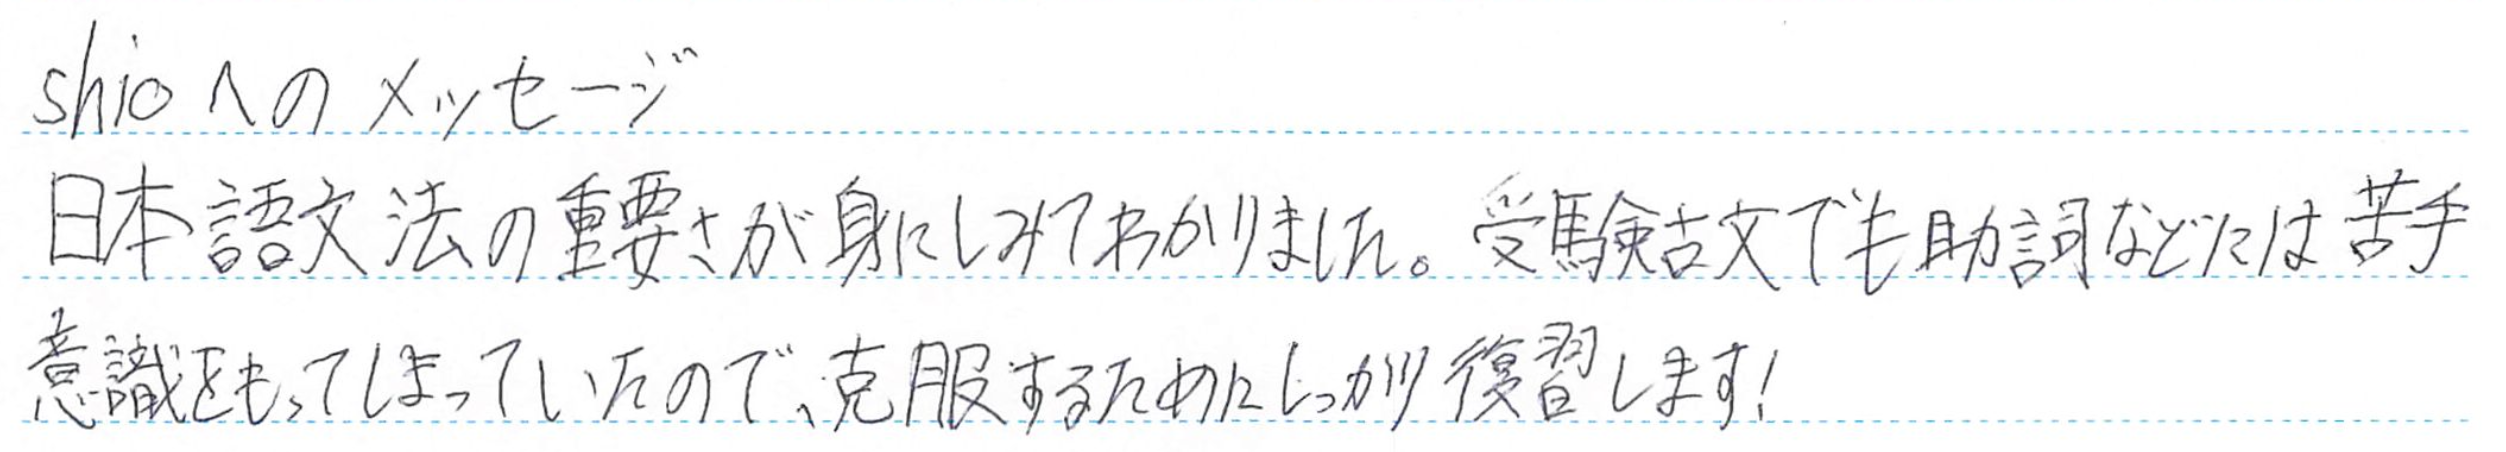 shioへのメッセージ
日本語文法の重要さが身にしみてわかりました。受験古文でも助詞などには苦手
意識をもってしまっていたので、克服するためにしっかり復習します!